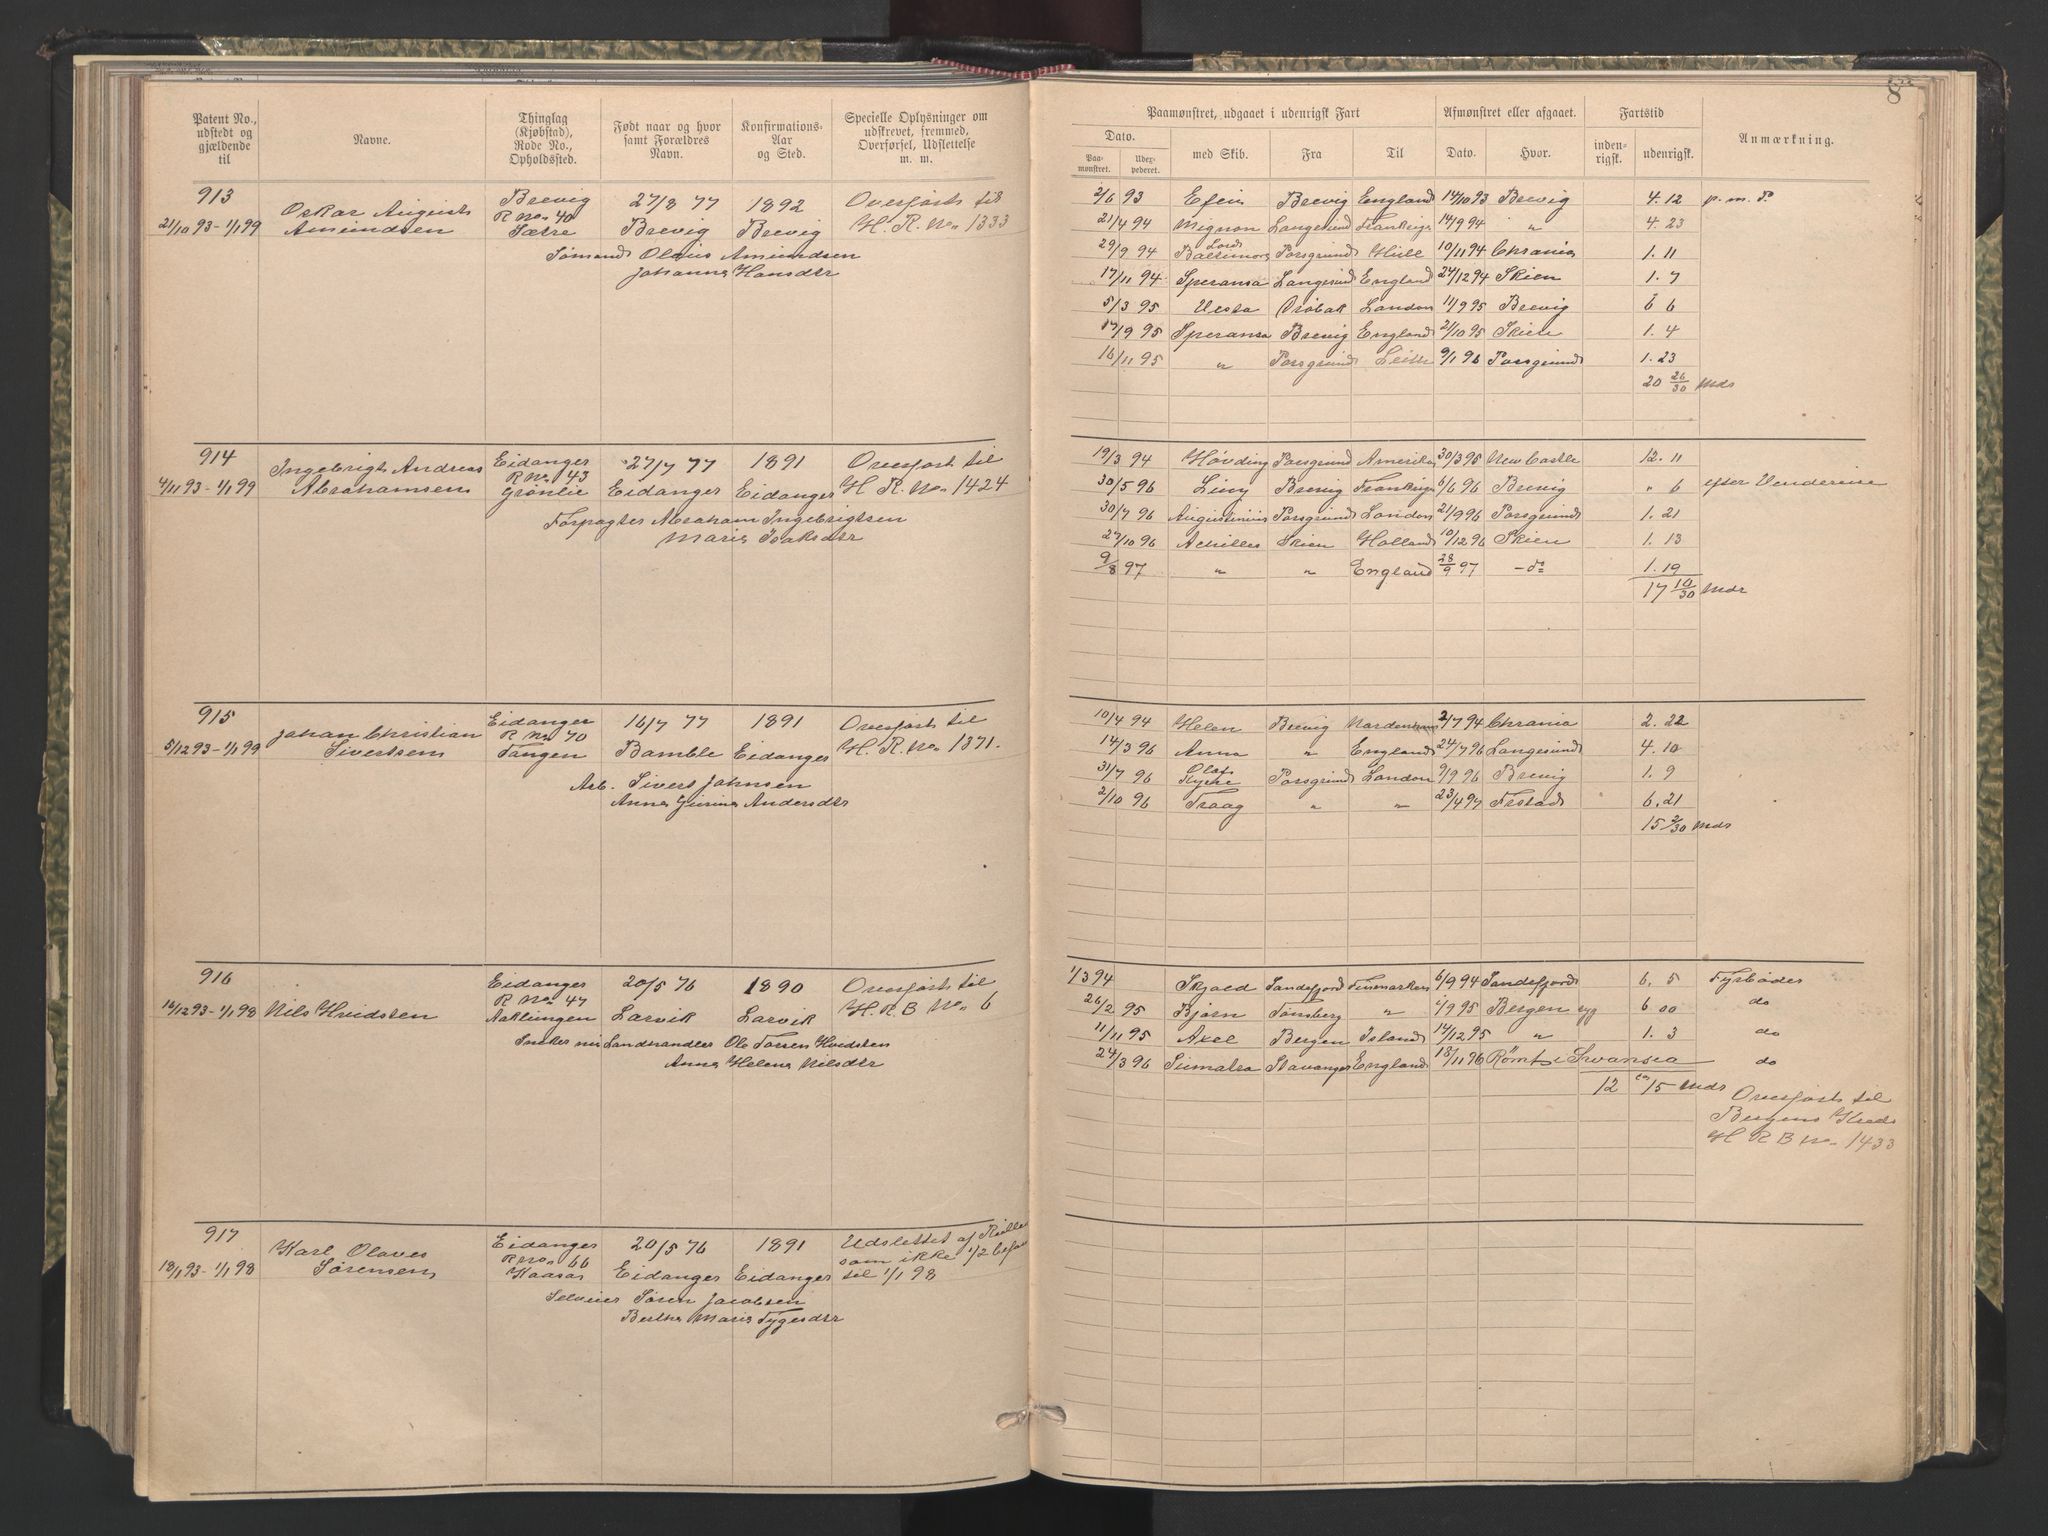 Patent No., udstedt og gjældende til
Navne.
Thinglag (Kjøbstad), Rode No., Opholdssted.
Født naar og hvor samt Forældres Navn.
Konfirmations-Aar og Sted.
Specielle Oplysninger om udskrevet, fremmed, Overførsel, Udslettelse m. m.
913 Brevig 27/8 77 1892 Overført til
21/10 93 - 1/1 99 Oskar August R No. 40 Brevig Brevig H. R. No. 1333
Amundsen Sætre
Sømand Olaus Amundsen
Johanne Hansdtr
914 Ingebrigt Andreas Eidanger 27/7 77 1891 Overført til
4/11 93 - 1/1 99 Abrahamsen R No. 43 Eidanger Eidanger H. R. No. 1424
Grønlie
Forpagter Abraham Ingebrigtsen
Maria Isaksdtr
915 Johan Christian Eidanger 16/7 77 1891 Overført til
5/12 93 - 1/1 99 Sivertsen R No. 70 Bamble Eidanger H. R. No. 1371.
Tangen
Arb. Sivert Johnsen
Anne Andersdtr
916 Eidanger 20/5 76 1890 Overført til
16/12 93 - 1/1 98 Nils Hvidsten R No. 47 Larvik Larvik H. R. B No. 6
Aaklungen
Landhandler Ole Hvidsten
Anne Helene Nilsdtr
917 Karl Olaves Eidanger 20/5 76 1891 Udslettet af Rullen
18/1 93 - 1/1 98 Sørensen R No. 66 Eidanger Eidanger som ikke 1/2 befaren
Kaasa til 1/1 98
Selveier Søren Jacobsen
Berthe Marie Tygesdtr
8
Paamønstret, udgaaet i udenrigsk Fart
Afmønstret eller afgaaet.
Fartstid
Anmærkning.
Dato. med Skib. Fra Til Dato. Hvor. inden-rigsk. udenrigsk.
Paa-mønstret. Udex-pederet.
2/6 93 Brevig England 14/10 93 Brevig 4. 12 p. m. P.
21/4 94 Mignon Langesund Frankrige 14/9 94 " 4. 23
29/9 94 Lord Baltimore Porsgrund Hull 10/11 94 Chrania 1. 11
17/11 94 Speransa Langesund England 24/12 94 Skien 1. 7
5/3 95 Vesta Drøbak London 11/9 95 Brevig 6 6
17/9 95 Speransa Brevig England 21/10 95 Skien 1. 4
16/11 95 " Porsgrund Leith 9/1 96 Porsgrund 1. 23
20 26/30 Mdr
19/3 94 Høvding Porsgrund Amerika 30/3 95 New Castle 12. 11
30/5 96 Liny Brevig Frankrige 6/6 96 Brevig " 6 efter Vendereise
30/7 96 Augustinius Porsgrund London 21/9 96 Porsgrund 1. 21
27/10 96 Achilles Skien Holland 10/12 96 Skien 1. 13
9/8 97 " " England 28/9 97 - do 1. 19
17 10/30 Mdr
10/4 94 Helen Brevig Nordenham 2/7 94 Chrania 2. 22
14/3 96 Anna " England 24/7 96 Langesund 4. 10
31/7 96 Olaf Kyrre Porsgrund London 9/9 96 Brevig 1. 9
2/10 96 Traag " " 23/4 97 Frstad 6. 21
15 2/30 Mdr
1/3 94 Skjold Sandefjord Finmarken 6/9 94 Sandefjord 6. 5 Fyrbøder
26/2 95 Bjørn Tønsberg " 1/9 95 Bergen syg 6 00 do
11/11 95 Axel Bergen Island 14/12 95 " 1. 3 do
24/3 96 Sumatra Stavanger England 18/11 96 Rømt i Swansea do
12 15 Mdr
Overført til
Bergens Kreds
H R B No. 1433